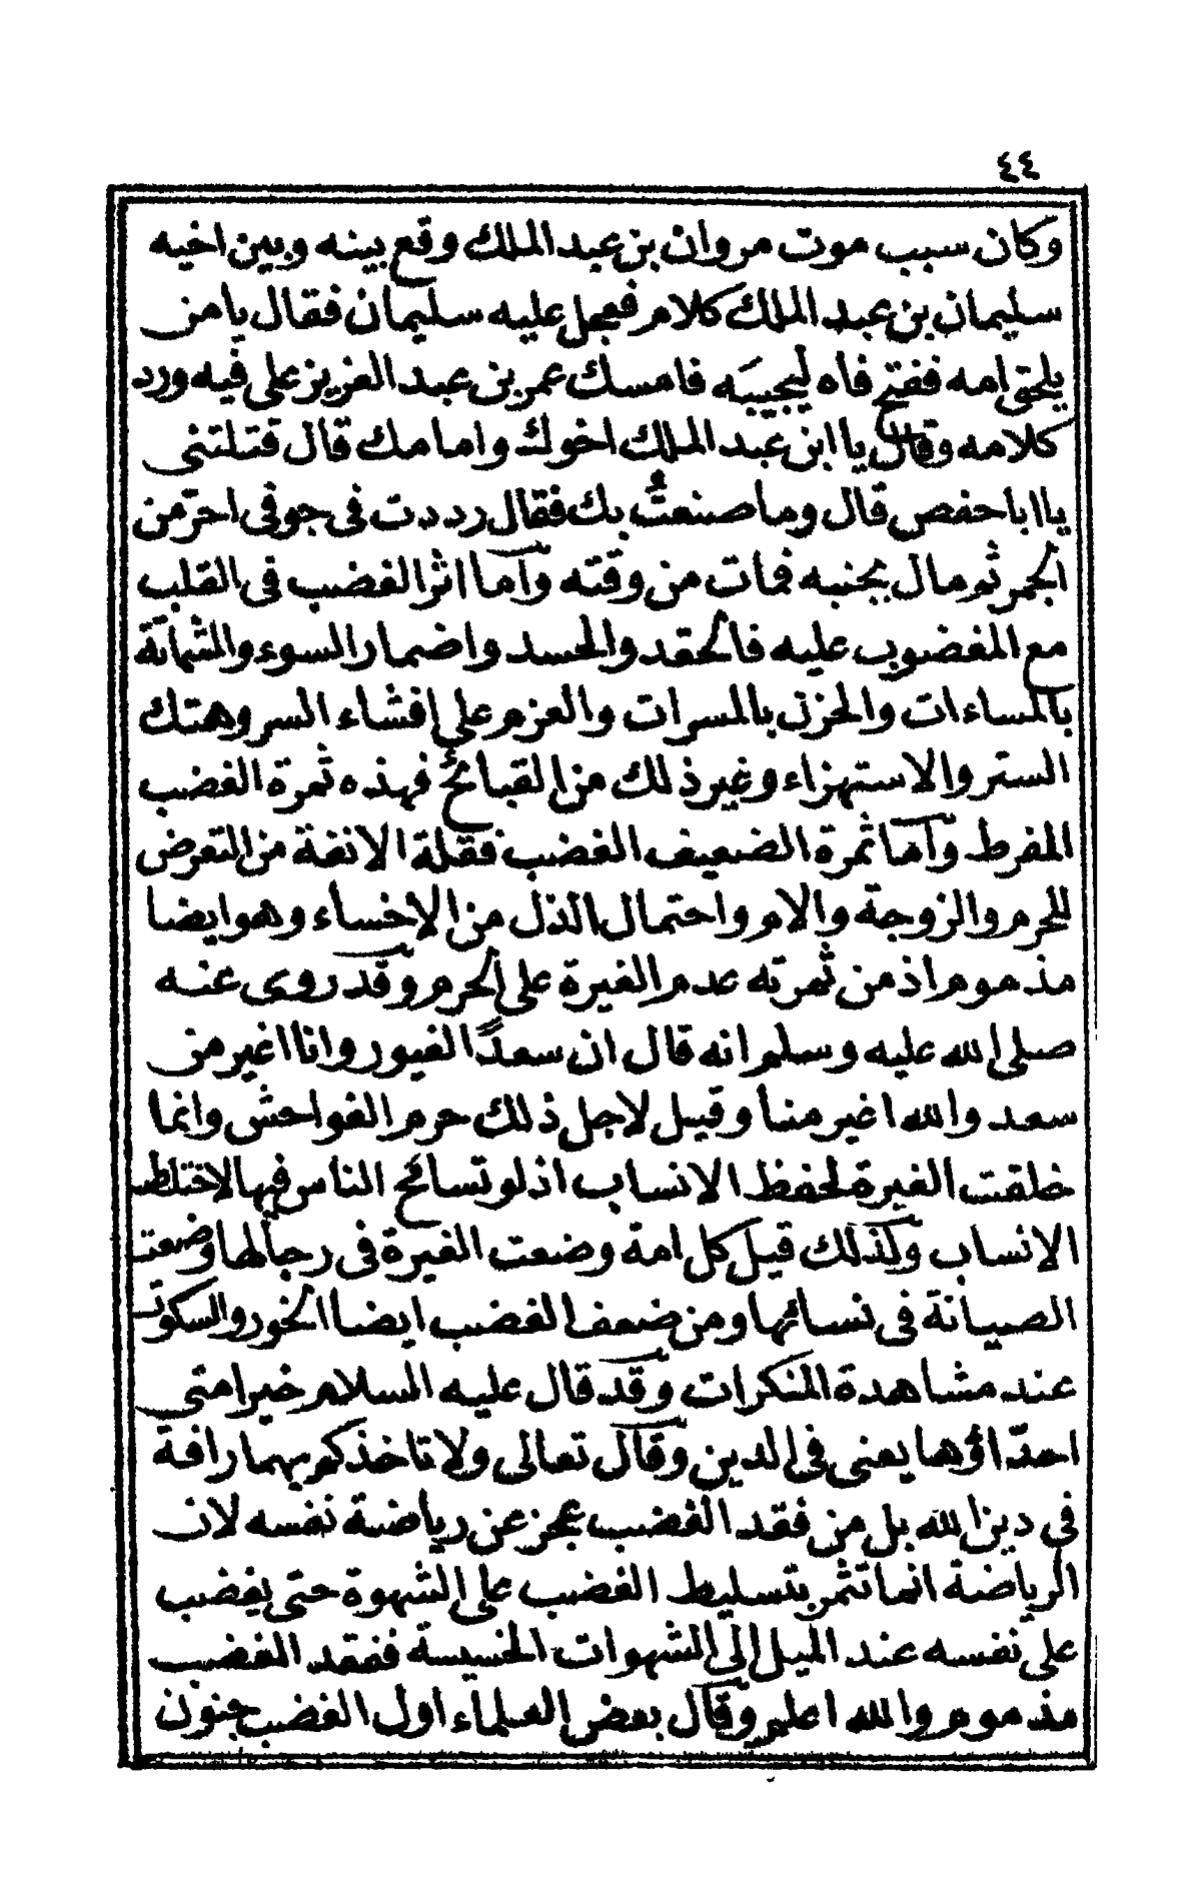 ٤٤
وكان سبب موت مروان بن عبد الملك وقع بينه وبين اخيه
سليمان بن عبد الملك كلام فعجل عليه سليمان فقال يا من
يلحق امه ففتح فاه ليجيبَه فامسك عمر بن عبد العزيز على فيه ورد
كلامه وقال يا ابن عبد الملك اخوك وامامك قال قتلتنى
يا ابا حفص قال وما صنعتُ بك فقال رددت فى جوفى احرّ من
الجمر ثم مال بجنبه فمات من وقته وآما اثر الغضب فى القلب
مع المغضوب عليه فالحقد والحسد واضمار السوء والشماتة
بالمساءات والحزن بالمسرات والعزم على افشاء السر وهتك
الستر والاستهزاء وغير ذلك من القبائح فهذه ثمرة الغضب
المفرط وآما ثمرة الضعيف الغضب فقلة الانفة من التعرض
للحرم والزوجة والام واحتمال الذل من الاخساء وهو ايضا
مذموم اذ من ثمرته عدم الغيرة على الحرم وقد روى عنه
صلى الله عليه وسلم انه قال ان سعدًا لغيور وانا اغير من
سعد والله اغير منا وقيل لاجل ذلك حرم الفواحش وانما
خلقت الغيرة لحفظ الانساب اذ لو تسامح الناس فيها لاختلطت
الانساب ولذلك قيل كل امة وضعت الغيرة فى رجالها وضعت
الصيانة فى نسائها ومن ضعف الغضب ايضا الخور والسكوت
عند مشاهدة المنكرات وقد قال عليه السلام خير امتى
احدّاؤها يعنى فى الدين وقال تعالى ولا تاخذكم بهما رافة
فى دين الله بل من فقد الغضب عجز عن رياضة نفسه لان
الرياضة انما تثمر بتسليط الغضب على الشهوة حتى يغضب
على نفسه عند الميل الى الشهوات الخسيسة ففقد الغضب
مذموم والله اعلم وقال بعض العلماء اول الغضب جنون